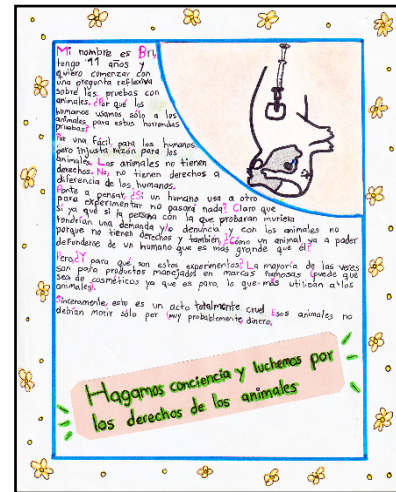 Mi nombre es Bri,
tengo 11 años y
quiero comenzar con
una pregunta reflexiva
sobre las pruebas con
animales. ¿Por qué los
humanos usamos sólo a los
animales para estas horrendas
pruebas?
Por una fácil para los humanos,
pero injusta razón para los
animales. Los animales no tienen
derechos. No, no tienen derechos a
diferencia de los humanos.
Ponte a pensar, ¿Si un humano usa a otro
para experimentar no pasará nada? Claro que
sí ya que si la persona con la que probaran muriera
tendrían una demanda y/o denuncia y con los animales no
porque no tienen derechos y también, ¿Cómo un animal va a poder
defenderse de un humano que es más grande que él?
Pero, ¿Y para qué son estos experimentos? La mayoría de las veces
son para productos manejados en marcas famosas (puede que
sea de cosméticos ya que es para lo que más utilizan a los
animales).
Sinceramente, este es un acto totalmente cruel. Esos animales no
debían morir sólo por (muy probablemente) dinero.
Hagamos conciencia y luchemos por
los derechos de los animales